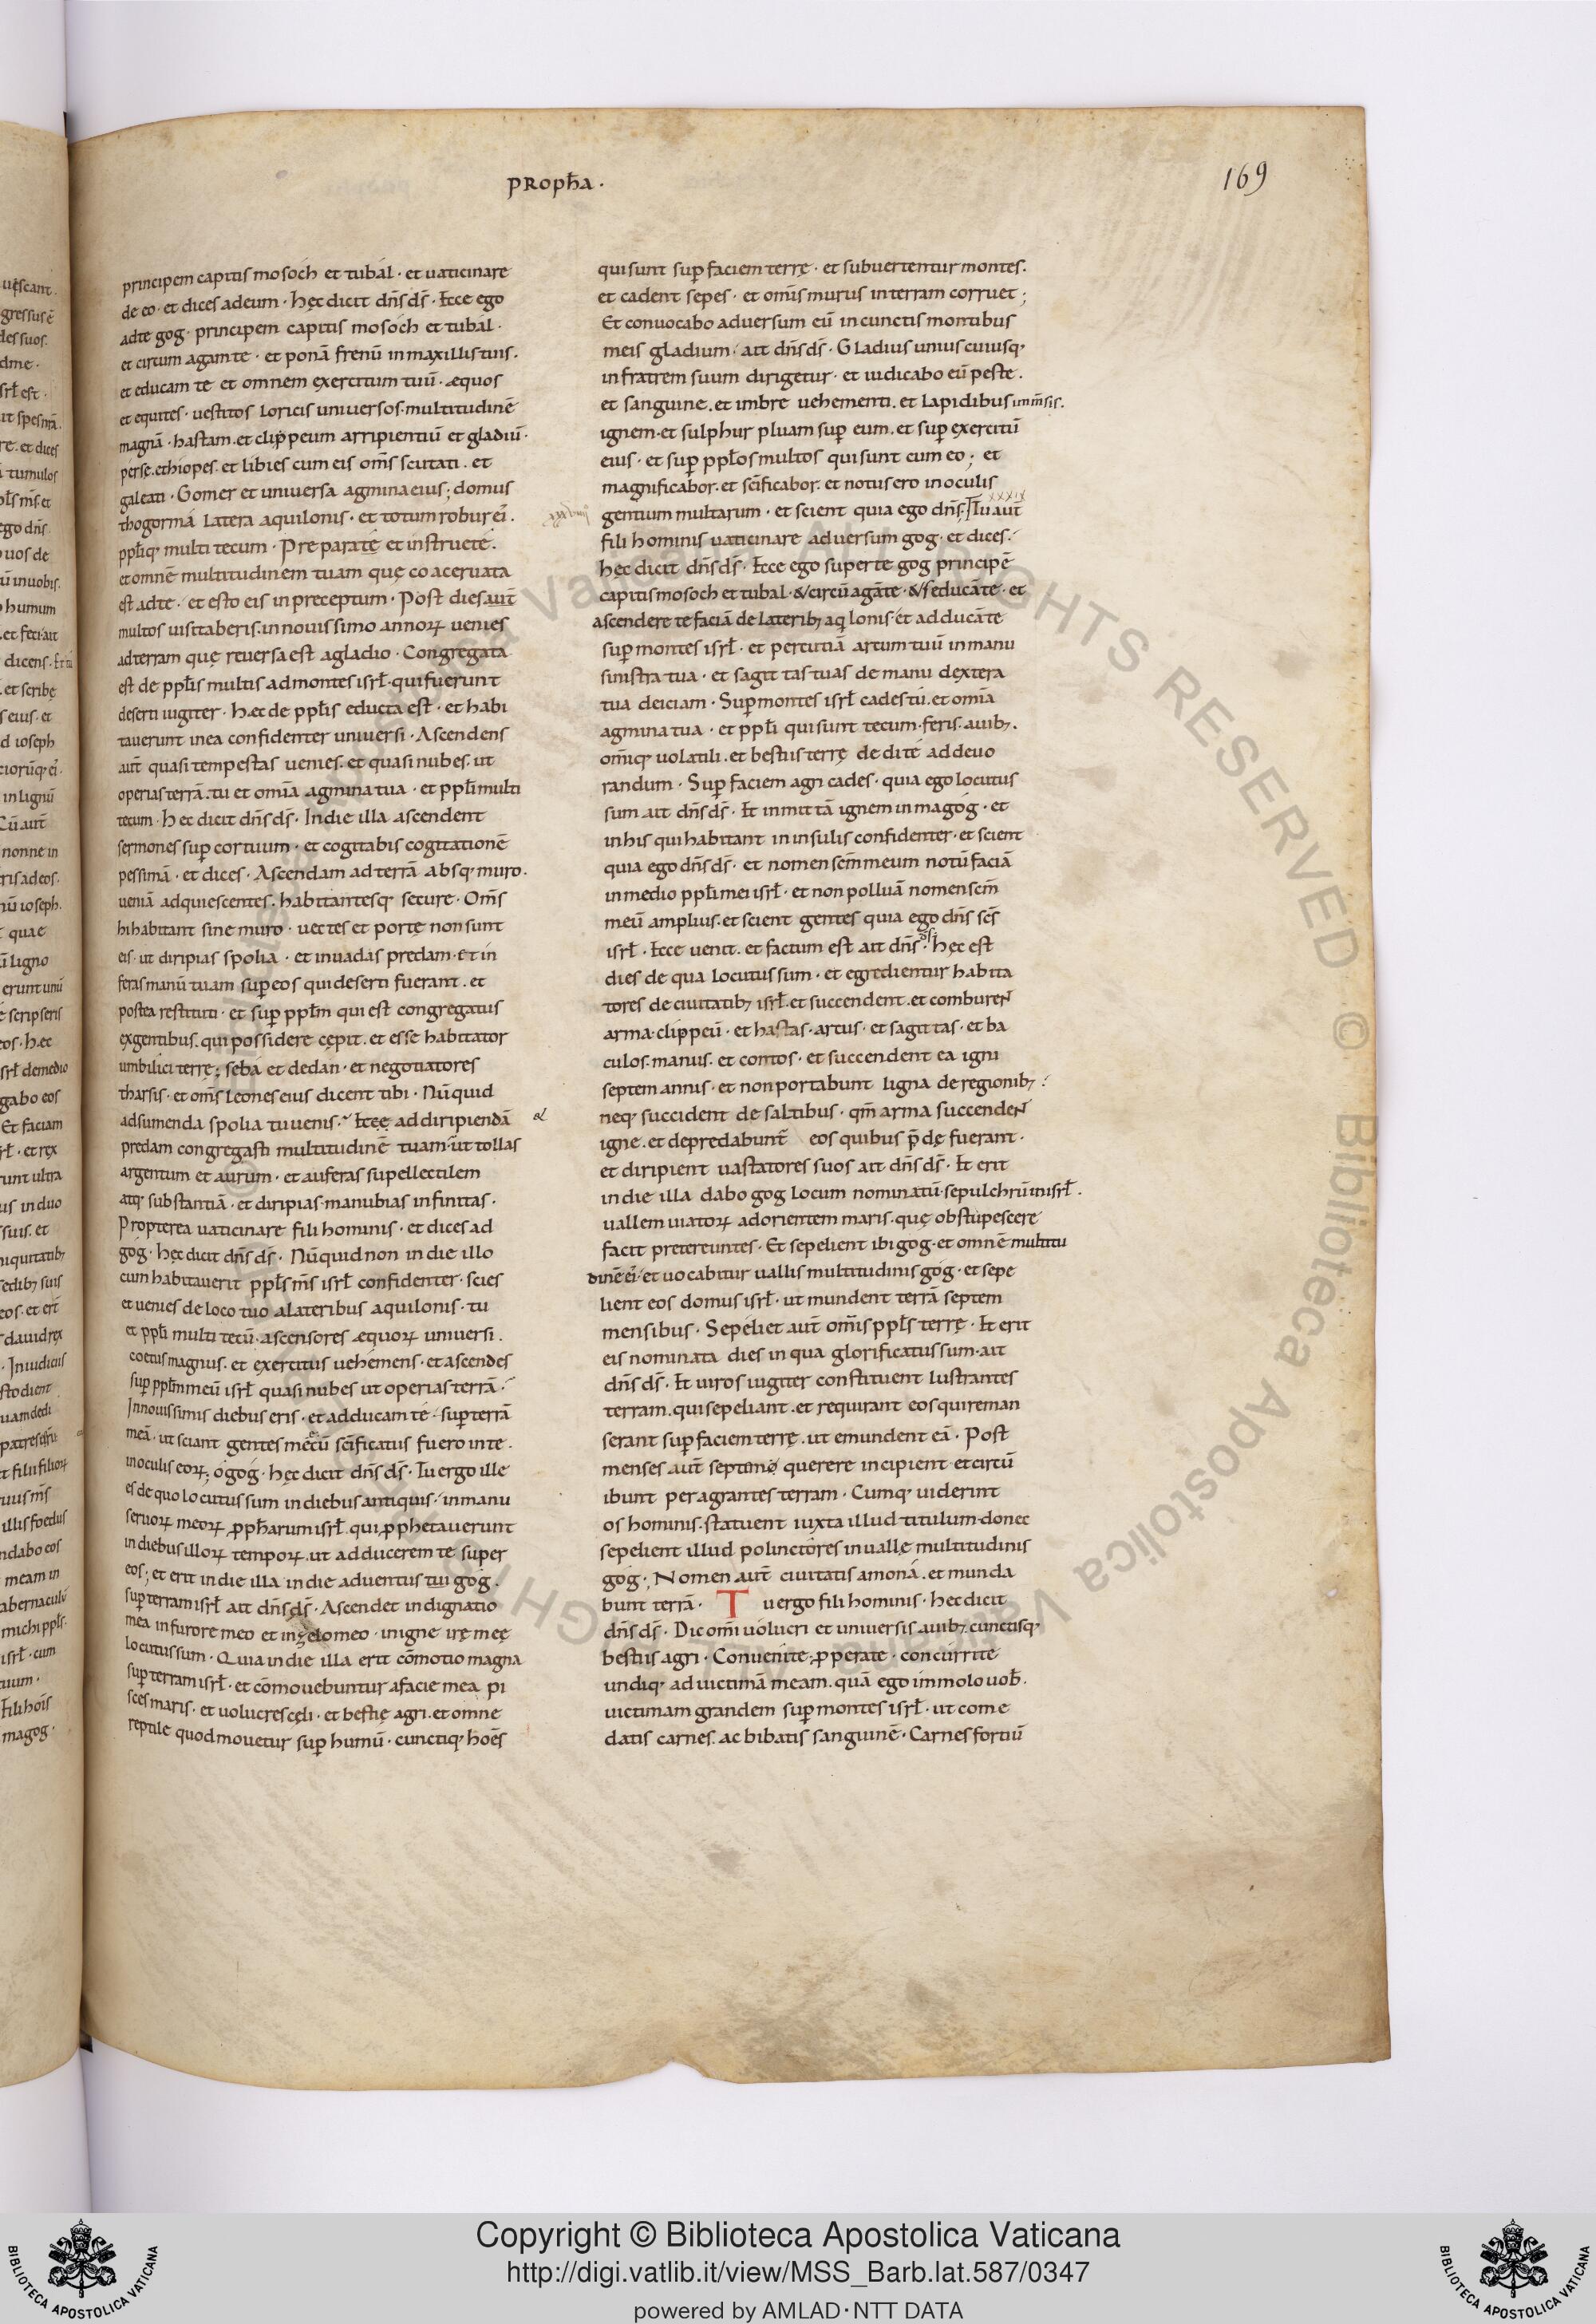 PROPħA·
169
principem capitis mosóch et tubál · et uaticinare
de eo · et dices ad eum · hęc dicit dñs d̄s · Ecce ego
ad te gog · principem capitis mosóch et tubál ·
et circum agam te · et ponā frenū in maxillis tuis ·
et educam te et omnem exercitum tuū · æquos
et equites · uestitos loricis uniuersos · multitudinē
magnā · hastam · et clippeum arripientiū et gladiū ·
perse · ethiopes · et libies cum eis om̄s scutati · et
galeati · Gomer et uniuersa agmina eius; domus
thogormá latera aquilonis · et totum robur ei᾿ ·
pp̄liq; multi tecum · Preparate et instruete ·
et omnē multitudinem tuam quę coaceruata
est ad te · et esto eis in preceptum · Post dies aut̄
multos uisitaberis · in nouissimo annoꝝ uenies
ad terram quę reuersa est a gladio · Congregata
est de pp̄lis multis ad montes isrł · qui fuerunt
deserti iugiter · hæc de pp̄lis educta est · et habi
tauerunt in ea confidenter uniuersi · Ascendens
aut̄ quasi tempestas uenies · et quasi nubes · ut
operias terrā · tu et omīa agmina tua · et pp̄li multi
tecum · hec dicit dñs d̄s · In die illa ascendent
sermones sup̄ cor tuum · et cogitabis cogitationē
pessimā · et dices · Ascendam ad terrā absq; muro ·
ueniā ad quiescentes · habitantesq; secure · Om̄s
hi habitant sine muro · uectes et porte non sunt
eis · ut diripias spolia · et inuadas predam · et in
feras manū tuam sup̄ eos qui deserti fuerant · et
postea restituti · et sup̄ pp̄lm qui est congregatus
ex gentibus · qui possidere cępit · et esse habitator
umbilici terrę; seba et dedán · et negotiatores
tharsis · et om̄s leones eius dicent tibi · Nūquid
ad sumenda spolia tu uenis · Ecce ad diripiendā
predam congregasti multitudinē tuam · ut tollas
argentum et aurum · et auferas supellectilem
atq; substantiā · et diripias manubias infinitas ·
Propterea uaticinare fili hominis · et dices ad
gog · hęc dicit dñs d̄s · Nūquid non in die illo
cum habitauerit pp̄ls m̄s isrł confidenter · scies
et uenies de loco tuo a lateribus aquilonis · tu
et pp̄li multi tecū · ascensores æquoꝝ uniuersi ·
coetus magnus · et exercitus uehemens · et ascendes
sup̄ pp̄lm meū isrł quasi nubes ut operias terrā ·
In nouissimis diebus eris · et adducam te · sup̄ terrā
meā · ut sciant gentes me cū sc̄ificatus fuero in te ·
in oculis eoꝝ; o gog · hęc dicit dñs d̄s · Tu ergo ille
es de quo locutus sum in diebus antiquis · in manu
seruoꝝ meoꝝ ꝓpħarum isrł · qui ꝓphetauerunt
in diebus illoꝝ tempoꝝ · ut adducerem te super
eos; et erit in die illa in die aduentus tui gog ·
sup̄ terram isrł ait dñs d̄s · Ascendet indignatio
mea in furore meo et in zelo meo · in igne irę meę
locutus sum · Quia in die illa erit cōmotio magna
sup̄ terram isrł · et cōmouebuntur a facie mea pi
sces maris · et uolucres cęli · et bestię agri · et omne
reptile quod mouetur sup̄ humū · cunctiq; hoēs
qui sunt sup̄ faciem terrę · et subuertentur montes ·
et cadent sepes · et om̄is murus in terram corruet ;
Et conuocabo aduersum eū in cunctis montibus
meis gladium · ait dñs d̄s · Gladius unius cuiusq;
in fratrem suum dirigetur · et iudicabo eū peste ·
et sanguine · et imbre uehementi · et lapidibus imm̄sis ·
ignem · et sulphur pluam sup̄ eum · et sup̄ exercitū
eius · et sup̄ pp̄los multos qui sunt cum eo; et
magnificabor · et sc̄ificabor · et notus ero in oculis
XXXIX
gentium multarum · et scient quia ego dñs · Tu aut̄
fili hominis uaticinare aduersum gog · et dices ·
hęc dicit dñs d̄s · Ecce ego super te gog principē
capitis mosoch et tubal · & circū agā te · & seducā te · et
ascendere te faciā de laterib; aq lonis · et adducā te
sup̄ montes isrł · et percutiā arcum tuū in manu
sinistra tua · et sagittas tuas de manu dextera
tua deiciam · Sup̄ montes isrł cades tú · et omīa
agmina tua · et pp̄li qui sunt tecum · feris · auib; ·
om̄iq; uolatili · et bestiis terrę dedi te ad deuo
randum · Sup̄ faciem agri cades · quia ego locutus
sum ait dñs d̄s · Et inmittā ignem in magóg · et
in his qui habitant in insulis confidenter · et scient
quia ego dñs d̄s · et nomen sc̄m meum notū faciā
in medio pp̄li mei isrł · et non polluā nomen sc̄m
meū amplius · et scient gentes quia ego dñs sc̄s
isrł · Ecce uenit · et factum est ait dñs d̄s · hęc est
dies de qua locutus sum · et egredientur habita
tores de ciuitatib; isrł · et succendent · et comburēt
arma · clippeū · et hastas · arcus · et sagittas · et ba
culos · manus · et contos · et succendent ea igni
septem annis · et non portabunt ligna de regionib; ·
neq; succident de saltibus · qm̄ arma succendēt
igne · et depredabunt̄ eos quibus p̄dę fuerant ·
et diripient uastatores suos ait dñs d̄s · Et erit
in die illa dabo gog locum nominatū · sepulchrū in isrł ·
uallem uiatoꝝ ad orientem maris · quę obstupescere
facit pretereuntes · Et sepelient ibi gog · et omnē multitu
dinē ei᾿ · et uocabitur uallis multitudinis gog · et sepe
lient eos domus isrł · ut mundent terrā septem
mensibus · Sepeliet aut̄ om̄is pp̄ls terrę · Et erit
eis nominata dies in qua glorificatus sum · ait
dñs d̄s · Et uiros iugiter constituent lustrantes
terram · qui sepeliant · et requirant eos qui reman
serant sup̄ faciem terrę · ut emundent eā · Post
menses aut̄ septem querere incipient et circū
ibunt peragrantes terram · Cumq; uiderint
os hominis · statuent iuxta illud titulum · donec
sepelient illud polinctóres in ualle multitudinis
gog ·; Nomen aut̄ ciuitatis amoná · et munda
bunt terrā · Tu ergo fili hominis · hec dicit
dñs d̄s · Dic om̄i uólucri et uniuersis auib; cunctisq;
bestiis agri · Conuenite · ꝓperate · concúrrite
undiq; ad uictimā meam · quā ego immolo uob̄ ·
uictimam grandem sup̄ montes isrł · ut come
datis carnes · ac bibatis sanguinē · Carnes fortiū
Copyright © Biblioteca Apostolica Vaticana
http://digi.vatlib.it/view/MSS_Barb.lat.587/0347
powered by AMLAD·NTT DATA